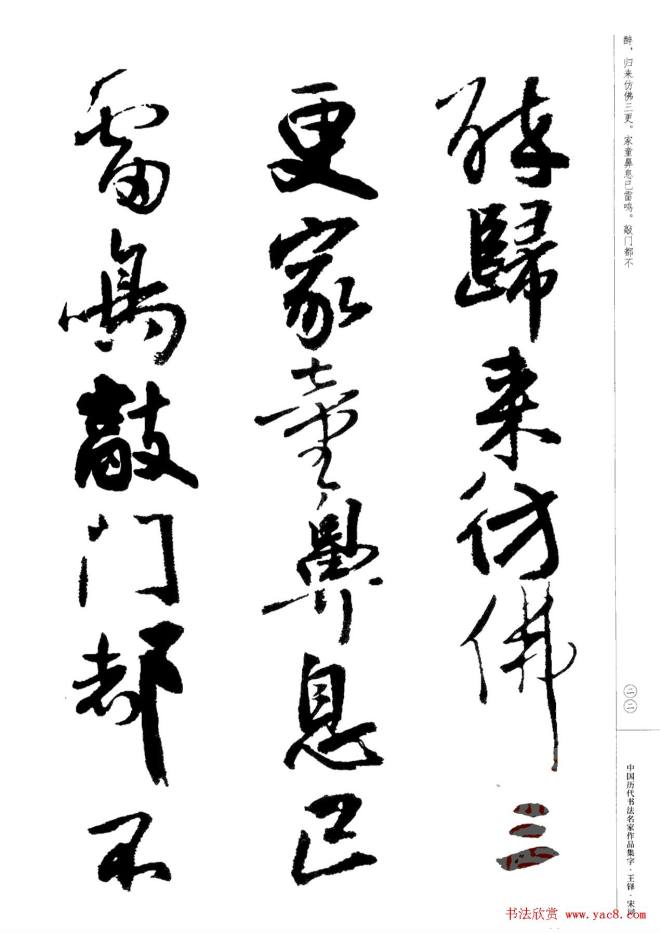 醉歸来仿佛三
更家童鼻息已
雷鳴敲门都不
醉，归来仿佛三更。家童鼻息已雷鸣。敲门都不
二二
中国历代书法名家作品集字·王铎·宋词
书法欣赏 www.yac8.com